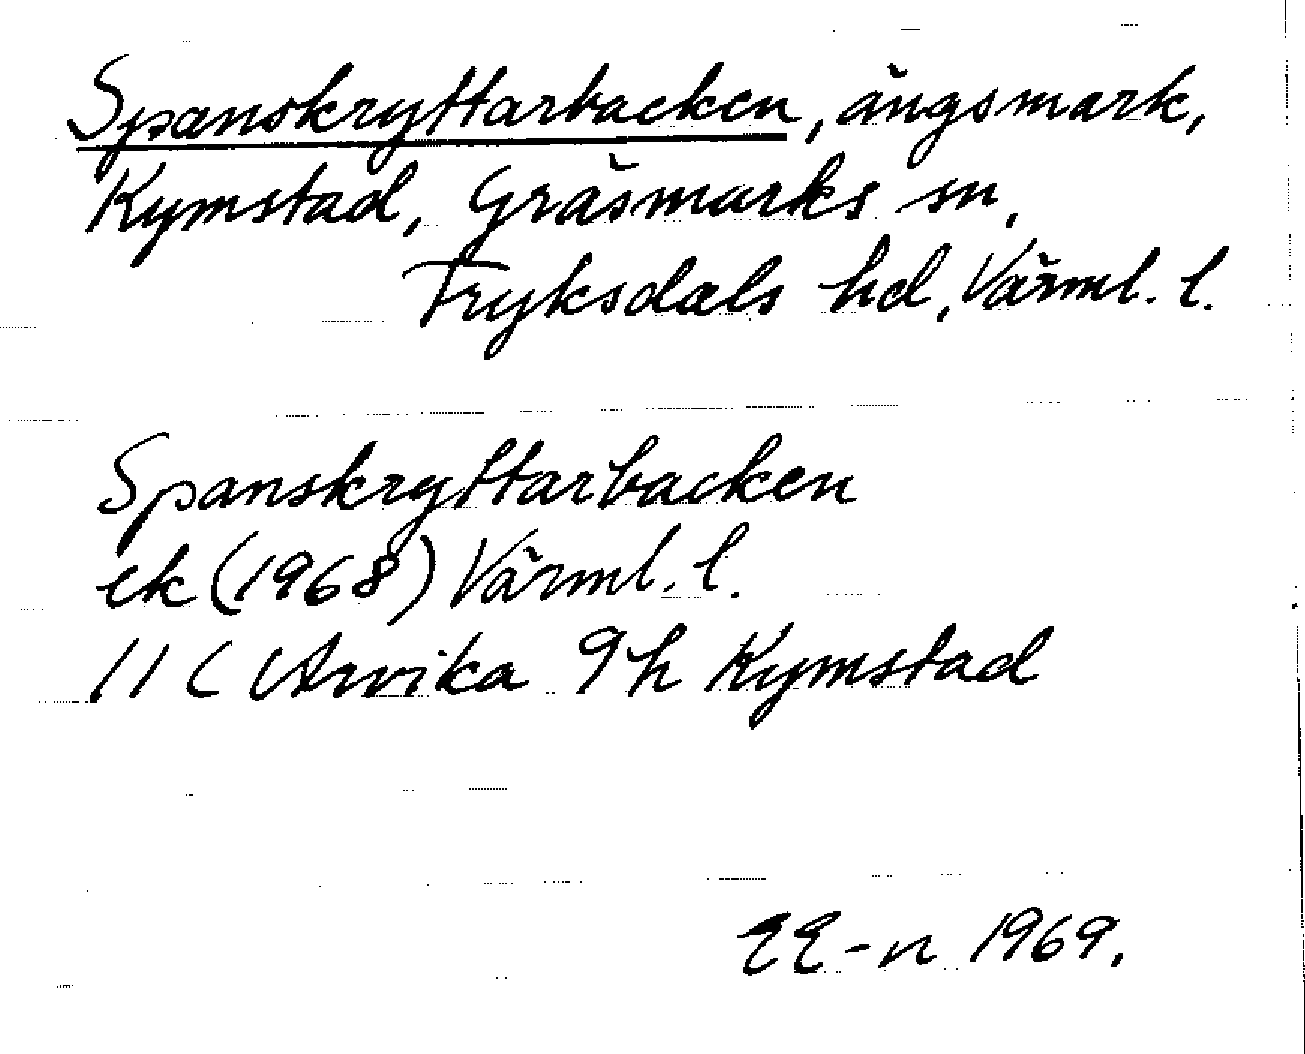 Spanskryttarbacken, ängsmark,
Kymstad, Gräsmarks sn,
Fryksdals hd, Värml. l.
Spanskryttarbacken
ek (1968) Värml. l.
11 C Arvika 9h Kymstad
EE-n 1969.